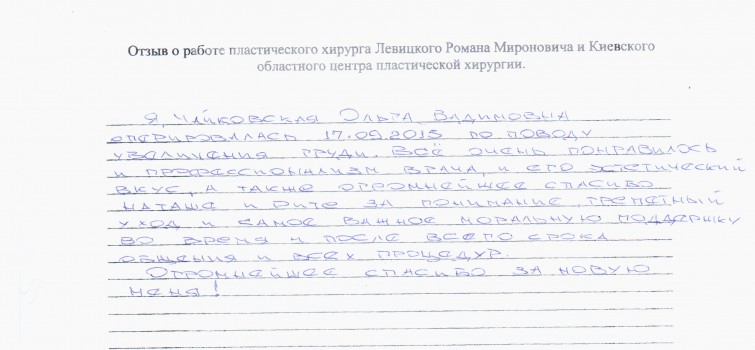 Отзыв о работе пластического хирурга Левицкого Романа Мироновича и Киевского
областного центра пластической хирургии.
Я, Чайковская Ольга Вадимовна
оперировалась 17.09.2015 по поводу
увеличения груди. Всё очень понравилось
и профессионализм врача, и его эстетический
вкус, а также огромнейшее спасибо
Наташе и Рите за понимание, трепетный
уход и самое важное моральную поддержку
во время и после всего срока
общения и всех процедур.
Огромнейшее спасибо за новую
меня!